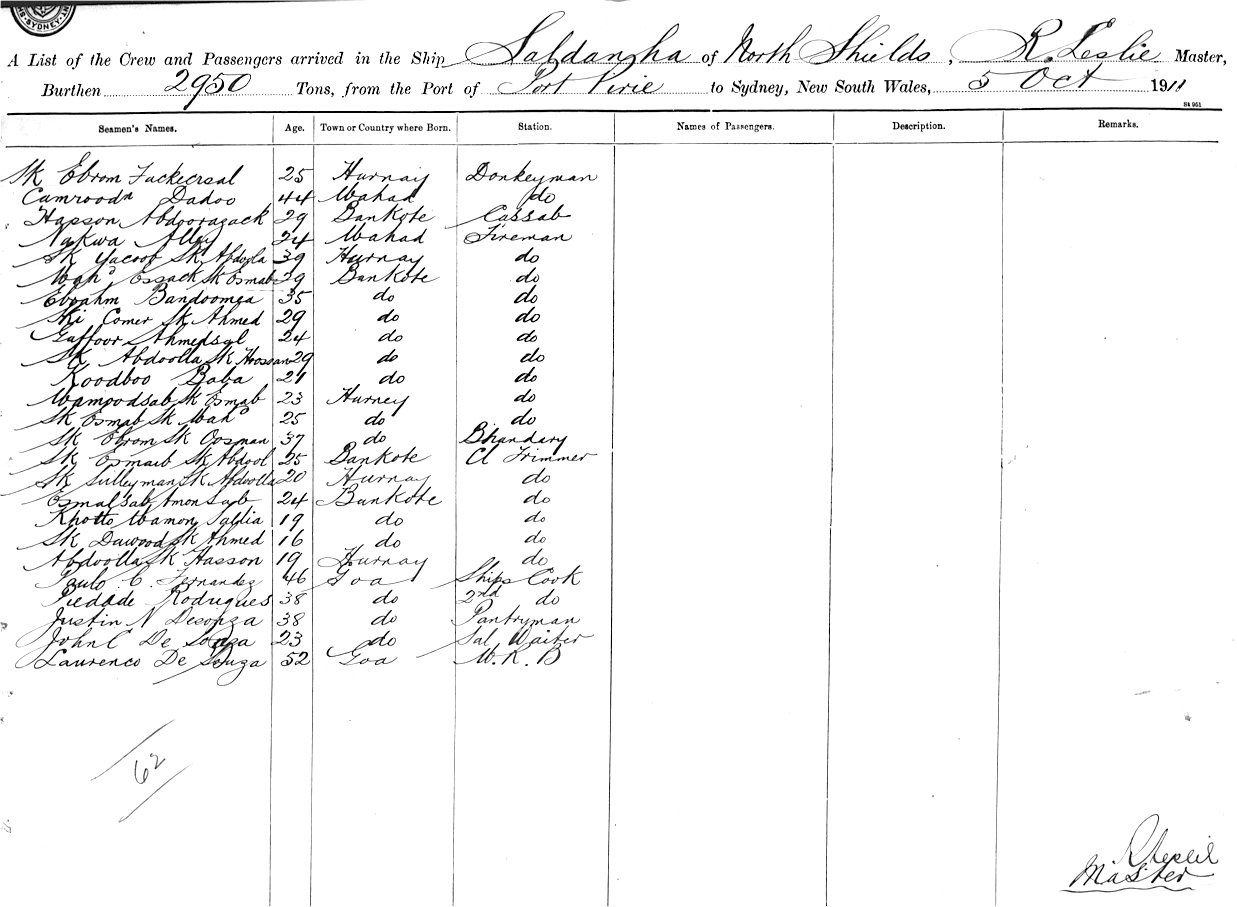 SYDNEY
A List of the Crew and Passengers arrived in the Ship Saldanha of North Shields, R. Leslie Master,
Burthen 2950 Tons, from the Port of Port Pirie to Sydney, New South Wales, 5 Oct 1911
St 961
Seamen's Names. Age. Town or Country where Born. Station. Names of Passengers. Description. Remarks.
Sk Ebrom Fuckeersal 25 Hurnay Donkeyman
Camroodn Dadoo 44 Mahad do
Hasson Abdoorazack 29 Bankote Cassab
Nakwa Alley 24 Mahad Fireman
Sk Yacoof Sk Abdoola 39 Hurnay do
Mahd Essack Sk Esmab 29 Bankote do
Ebrahm Bandoomea 35 do do
Ski Comer Sk Ahmed 29 do do
Gaffoor Ahmedsab 24 do do
Sk Abdoolla Sk Hoossan 29 do do
Koodboo Baba 21 do do
Mamoodsab Sk Esmab 23 Hurney do
Sk Esmab Sk Mahd 25 do do
Sk Ebrom Sk Oosman 37 do Bhandary
Sk Esmaib Sk Abdool 25 Bankote Cl Trimmer
Sk Sulleyman Sk Abdoolla 20 Hurnay do
Esmalsab Amonsaib 24 Bankote do
Khotto Mamon Saldia 19 do do
Sk Dawood Sk Ahmed 16 do do
Abdoolla Sk Hasson 19 Hurnay do
Paulo C. Fernandez 46 Goa Ships Cook
Piedade Rodrugues 38 do 2nd do
Justin N Desouza 38 do Pantryman
John C De Souza 23 do Sal Waiter
Laurenco De Souza 52 Goa M.R.B
62
R Leslie
Master